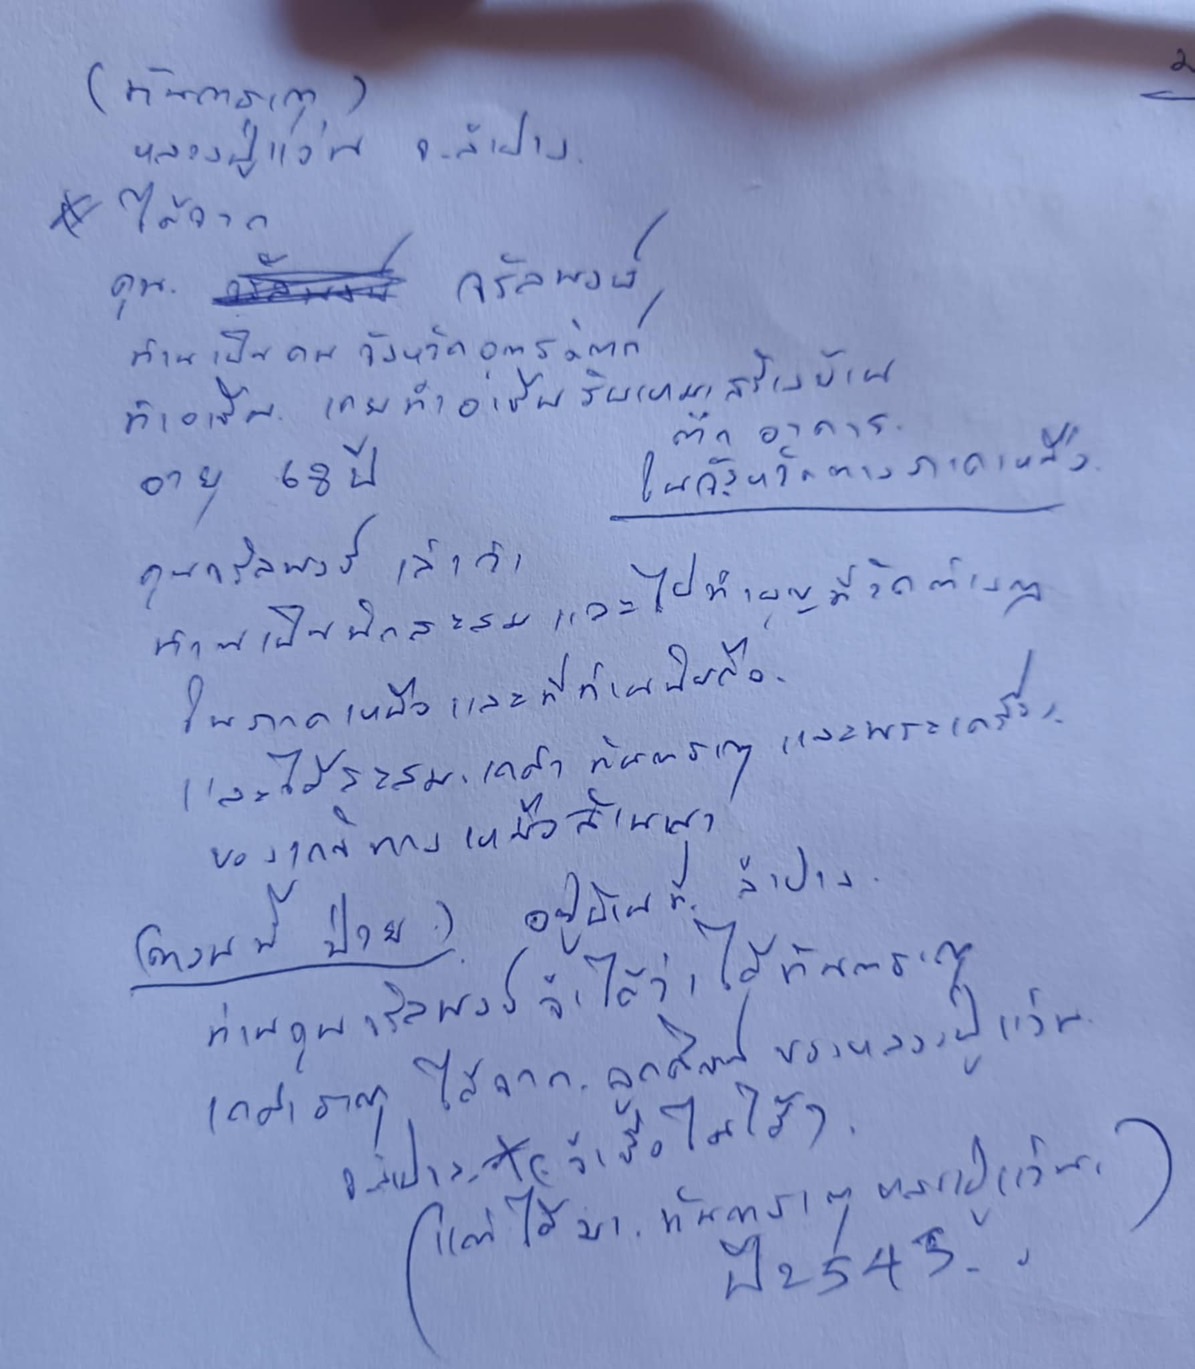 (ทันตธาตุ)
หลวงปู่แว่น จ.ลำปาง.
ได้จาก
คุณ. จรัลพงษ์
ท่านเป็นคน จังหวัดอุตรดิตถ์
ทำอาชีพ. เคยทำอาชีพรับเหมาสร้างบ้าน
ตึก อาคาร.
ในจังหวัดทางภาคเหนือ.
อายุ 68 ปี
คุณจรัลพงษ์ เล่าว่า
ท่านเป็นนักสะสม และไปทำบุญที่วัดต่างๆ
ในภาคเหนือ และที่ท่านนับถือ.
และได้สะสม. เกศา ทันตธาตุ และพระเครื่อง.
ของเกจิทางเหนือล้านนา
(ตอนนี้ ป่วย.) อยู่บ้านที่. ลำปาง.
ท่านคุณจรัลพงษ์ จำได้ว่า ได้ทันตธาตุ
เกศาธาตุ ได้จาก. ลูกศิษย์ ของหลวงปู่แว่น.
จ.ลำปาง. จำชื่อไม่ได้ๆ.
(แต่ได้มา. ทันตธาตุ หลวงปู่แว่น.)
ปี 2543.